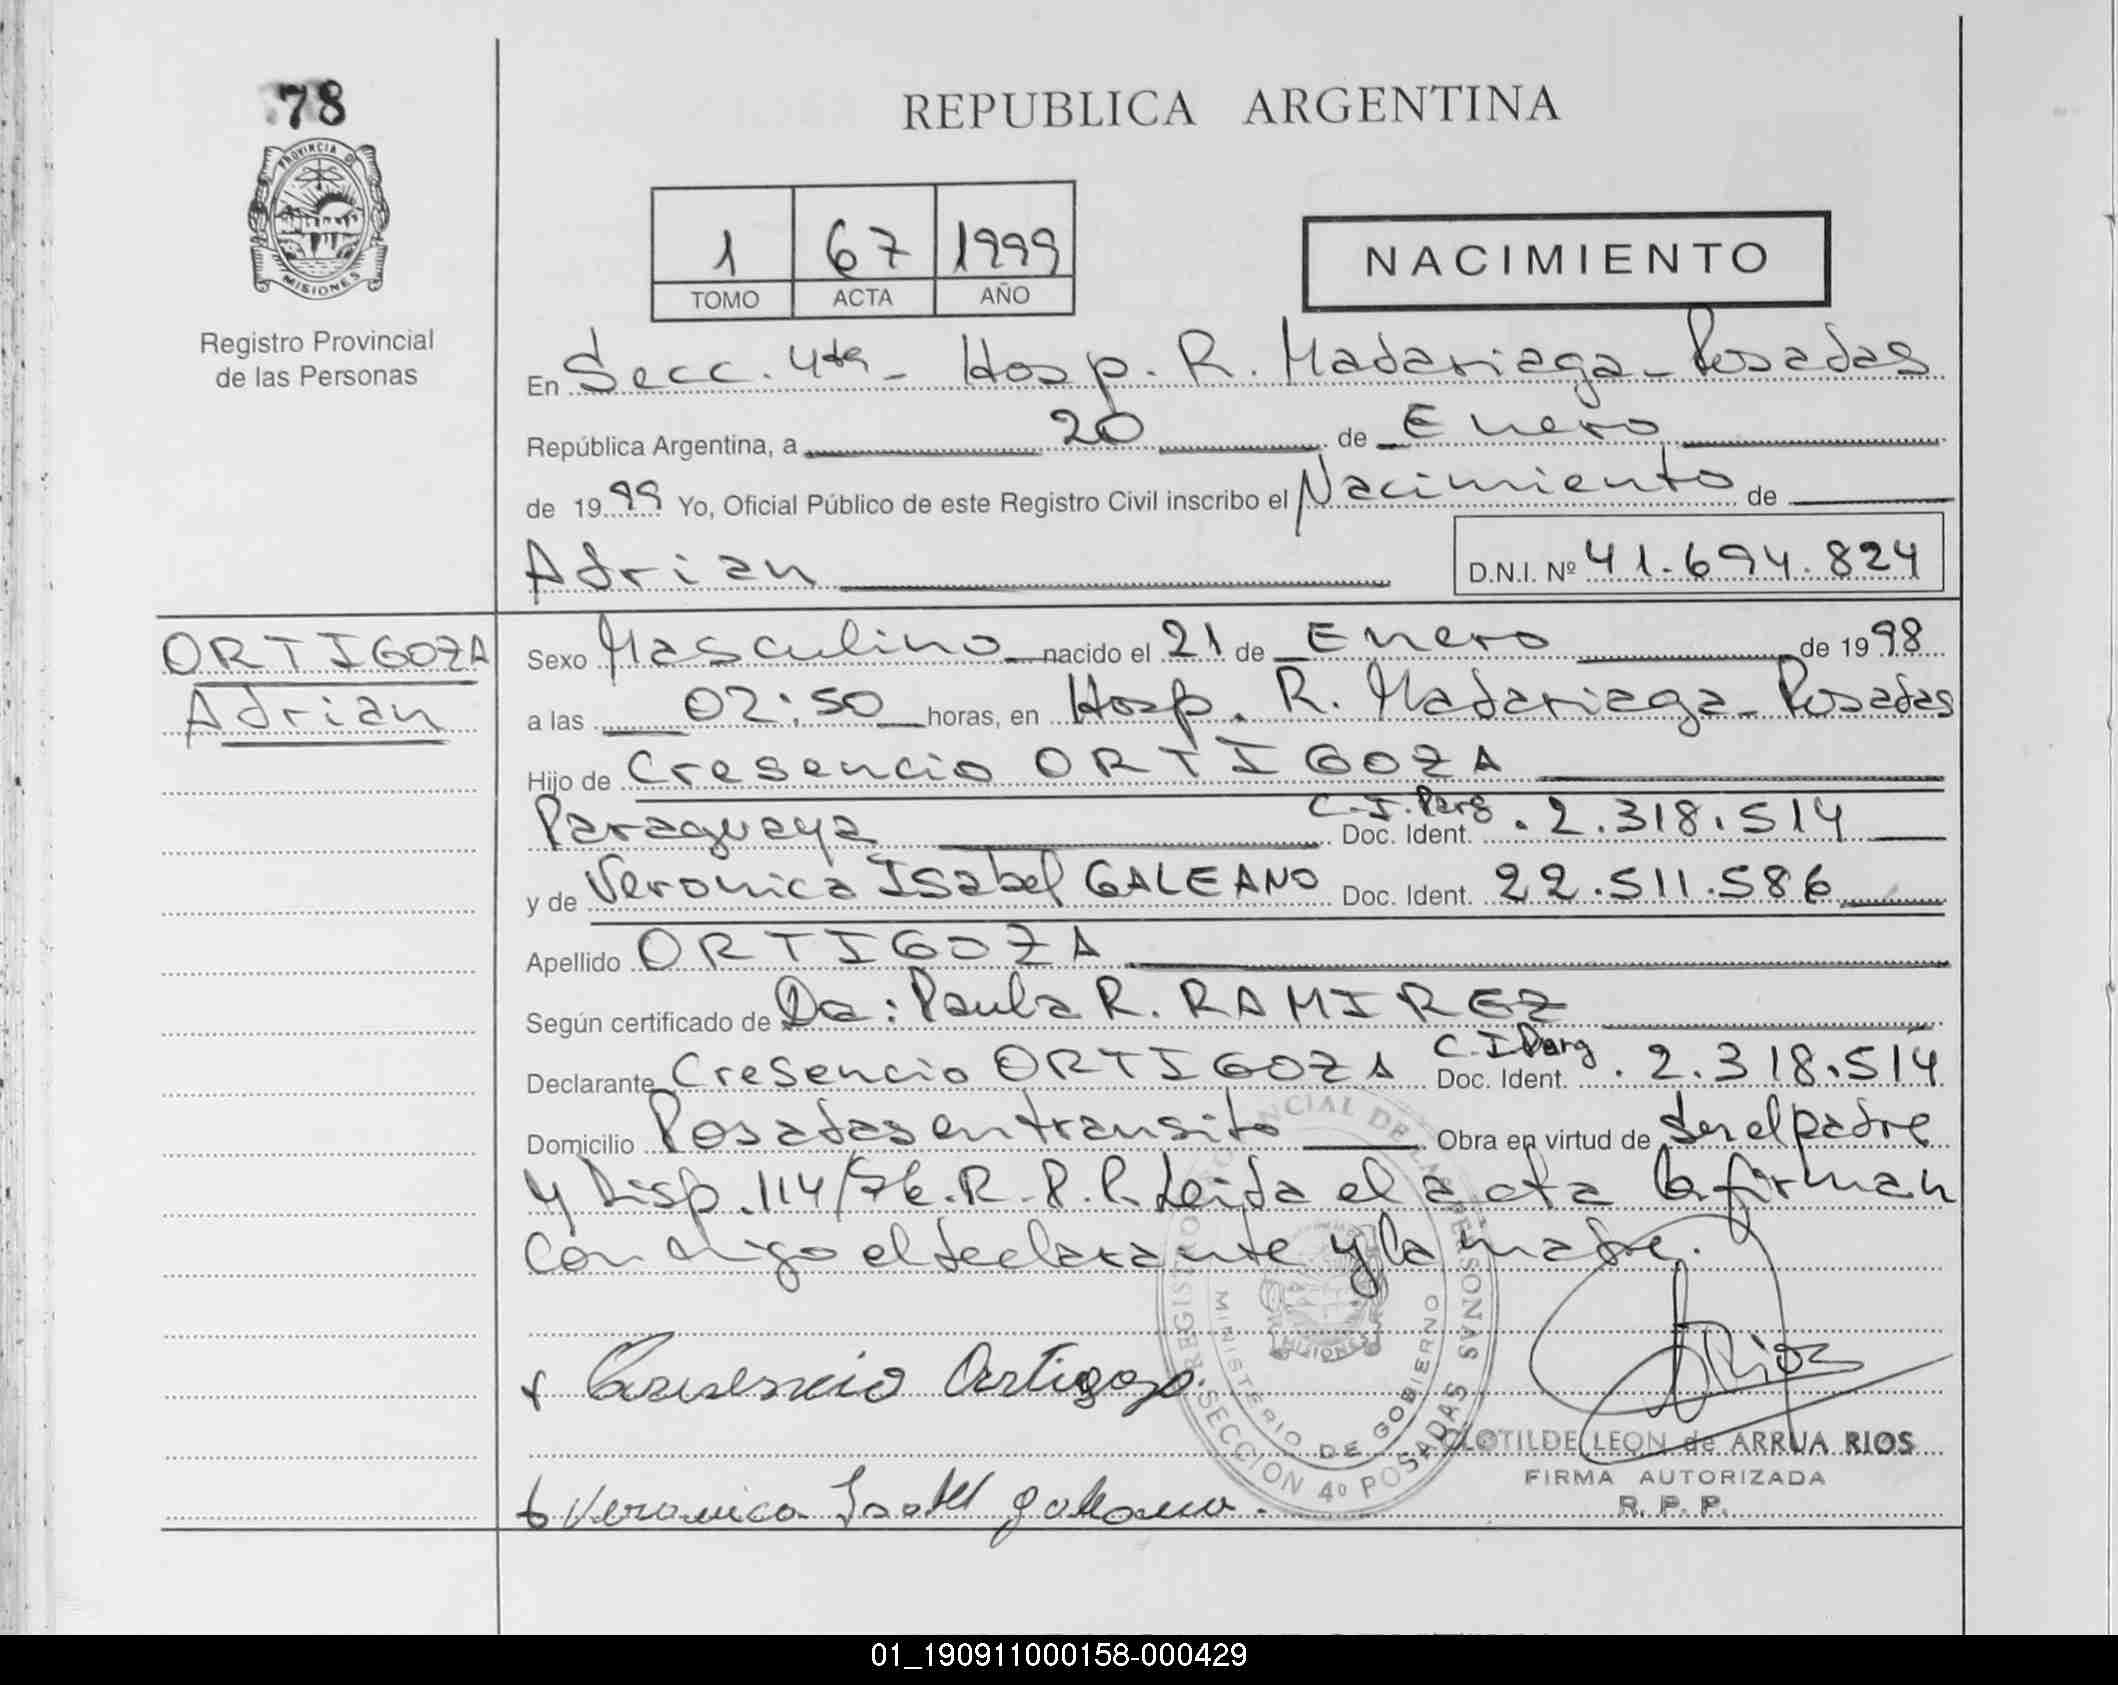 78
REPUBLICA ARGENTINA
PROVINCIA DE
MISIONES
Registro Provincial
de las Personas
1 67 1999
TOMO ACTA AÑO
NACIMIENTO
En Secc. 4ta - Hosp. R. Madariaga - Posadas
República Argentina, a 20 de Enero
de 1999 Yo, Oficial Público de este Registro Civil inscribo el Nacimiento de
Adrian D.N.I. Nº 41.694.824
ORTIGOZA
Adrian
Sexo Masculino nacido el 21 de Enero de 1998
a las 02:50 horas, en Hosp. R. Madariaga - Posadas
Hijo de Cresencio ORTIGOZA
Paraguaya C.I. Parg Doc. Ident. . 2.318.514
y de Veronica Isabel GALEANO Doc. Ident. 22.511.586
Apellido ORTIGOZA
Según certificado de Da: Paula R. RAMIREZ
Declarante Cresencio ORTIGOZA C.I Parg Doc. Ident. . 2.318.514
Domicilio Posadas en transito Obra en virtud de ser el padre
y Disp. 114/76. R.P.P. Leida el acta la firman
conmigo el declarante y la madre.
Cresencio Ortigoza
Rios
REGISTRO PROVINCIAL DE LAS PERSONAS
MINISTERIO DE GOBIERNO
MISIONES
SECCION 4º POSADAS
CLOTILDE LEON de ARRUA RIOS
FIRMA AUTORIZADA
R. P. P.
Veronica Isabel galeano.
01_190911000158-000429